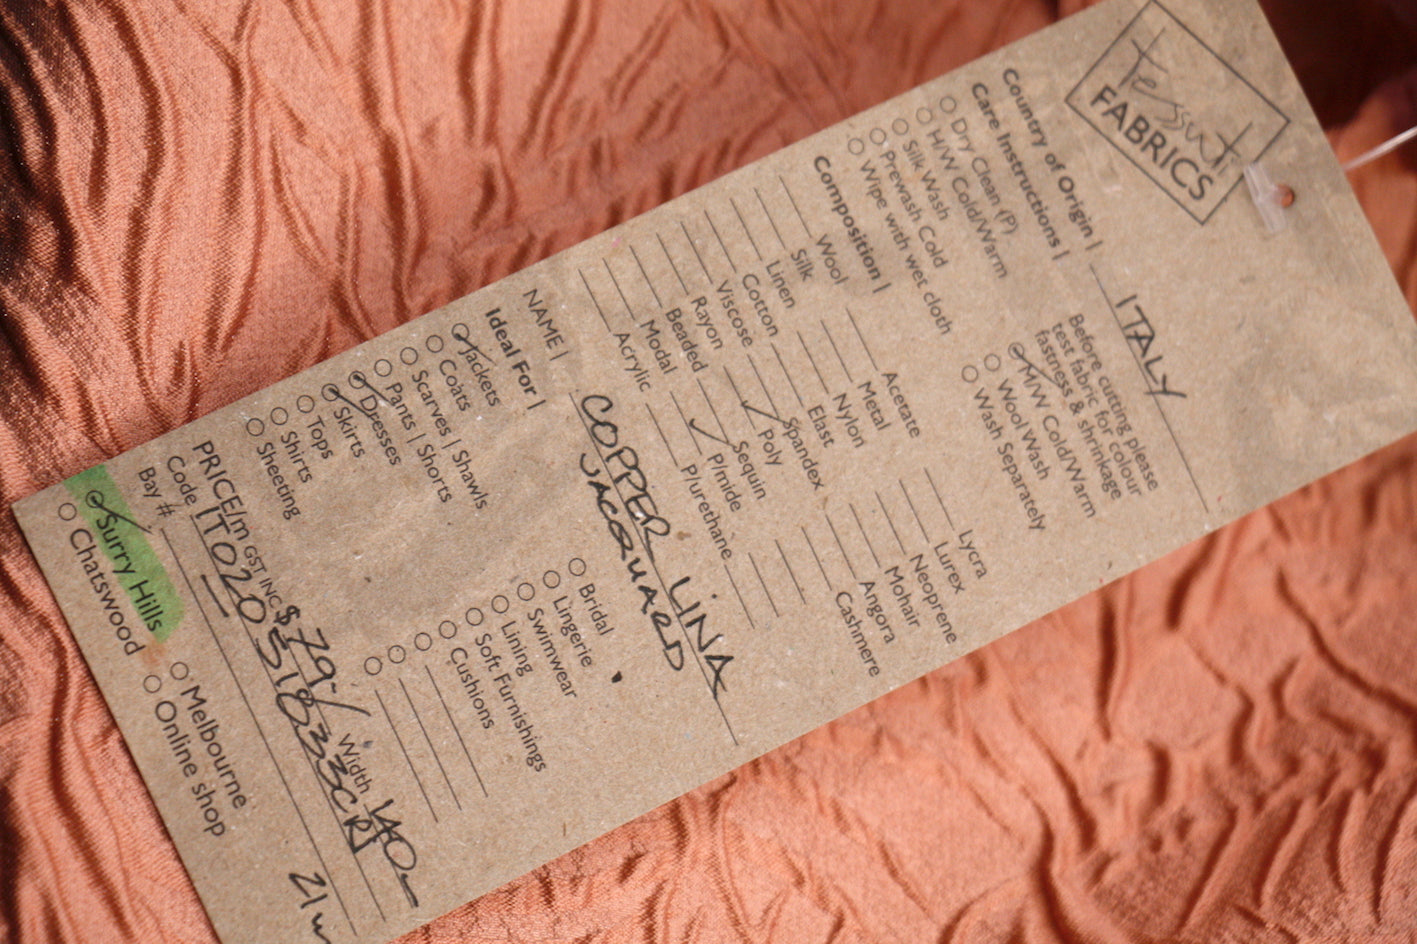 Tessuti
FABRICS
Country of Origin | ITALY
Care Instructions |
Before cutting please
test fabric for colour
fastness & shrinkage
Dry Clean (P)
H/W Cold/Warm
Silk Wash
Prewash Cold
Wipe with wet cloth
M/W Cold/Warm
Wool Wash
Wash Separately
Composition |
Wool
Silk
Linen
Cotton
Viscose
Rayon
Beaded
Modal
Acrylic
Acetate
Metal
Nylon
Elast
Spandex
Poly
Sequin
P/mide
P/urethane
Lycra
Lurex
Neoprene
Mohair
Angora
Cashmere
NAME | COPPER LINA
JACQUARD
Ideal For |
Jackets
Coats
Scarves | Shawls
Pants | Shorts
Dresses
Skirts
Tops
Shirts
Sheeting
Bridal
Lingerie
Swimwear
Lining
Soft Furnishings
Cushions
PRICE/m GST INC $79-/ Width 140-
Code
Bay #
Surry Hills
Chatswood
Melbourne
Online shop